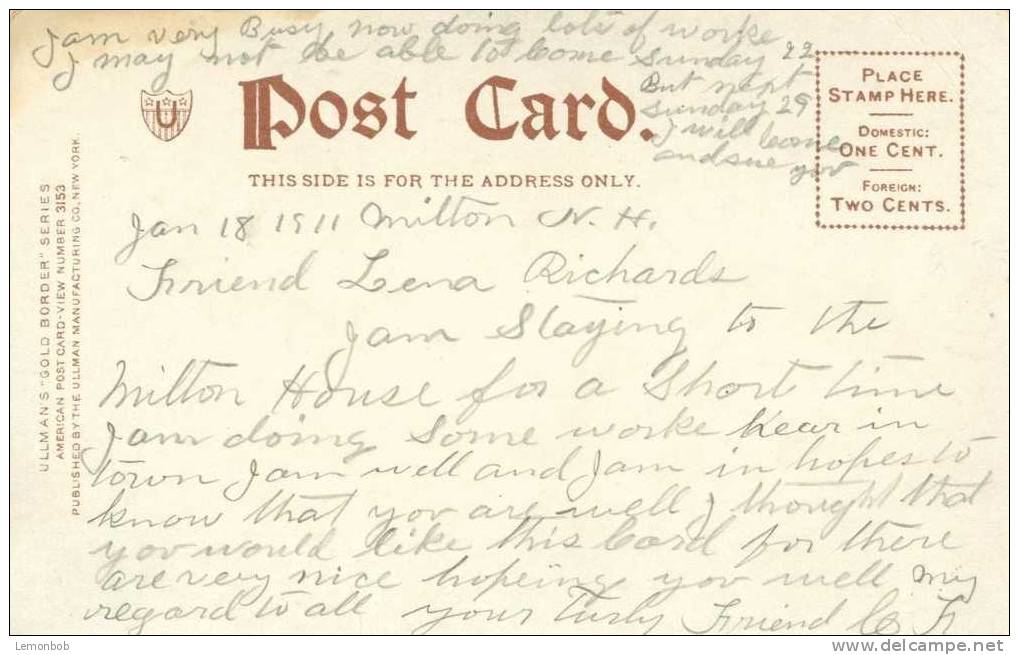 I am very Busy now doing lots of worke
I may not be able to Come Sunday 22
But next
Sunday 29
I will Come
and see you
U
Post Card.
THIS SIDE IS FOR THE ADDRESS ONLY.
PLACE
STAMP HERE.
DOMESTIC:
ONE CENT.
FOREIGN:
TWO CENTS.
ULLMAN'S "GOLD BORDER" SERIES
AMERICAN POST CARD-VIEW NUMBER 3153
PUBLISHED BY THE ULLMAN MANUFACTURING CO., NEW YORK.
Jan 18 1911 Milton N. H.
Friend Lena Richards
I am Staying to the
Milton House for a Short time
I am doing Some worke hear in
town I am well and I am in hopes to
know that you are well I thought that
you would like this Card for there
are very nice hopeing you well My
regard to all your Turly Friend C F
Lemonbob
www.delcampe.net